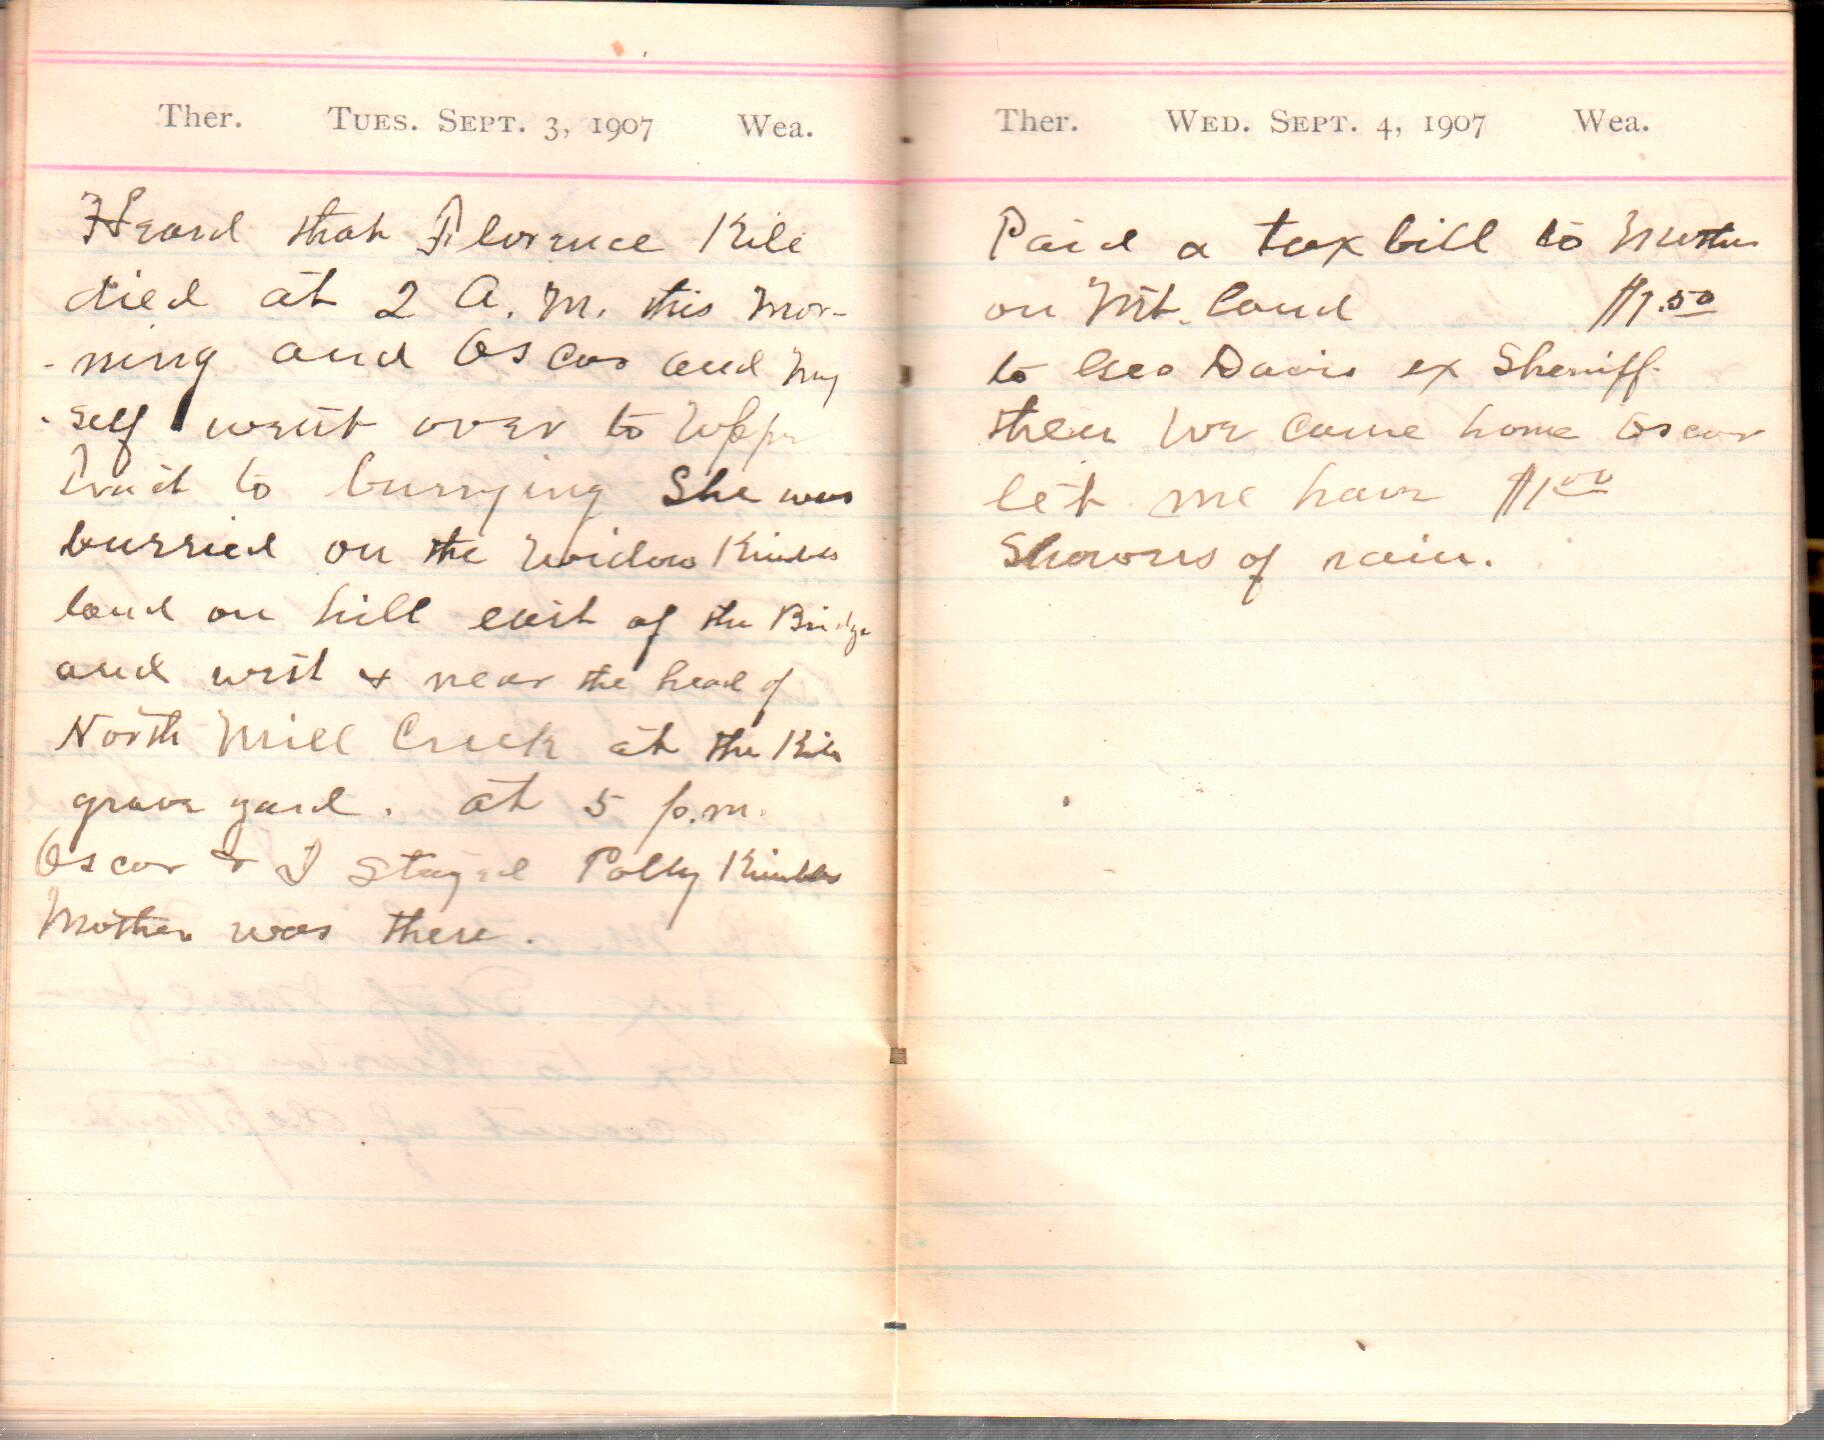 Ther. TUES. SEPT. 3, 1907 Wea.
Heard that Florence Kile
died at 2 A. M. this Mor-
-ning and Oscar and my
self went over to Upper
Tract to burrying She was
burried on the Widow Kimbles
land on hill east of the Bridge
and west & near the head of
North Mill Creek at the Kile
grave yard. at 5 p.m.
Oscar & I stayed Polly Kimbles
Mother was there.
Ther. WED. SEPT. 4, 1907 Wea.
Paid a tax bill to
on Mt. land $1.50
to Geo Davis ex Sheriff.
then we came home Oscar
let me have $1.00
Showers of rain.